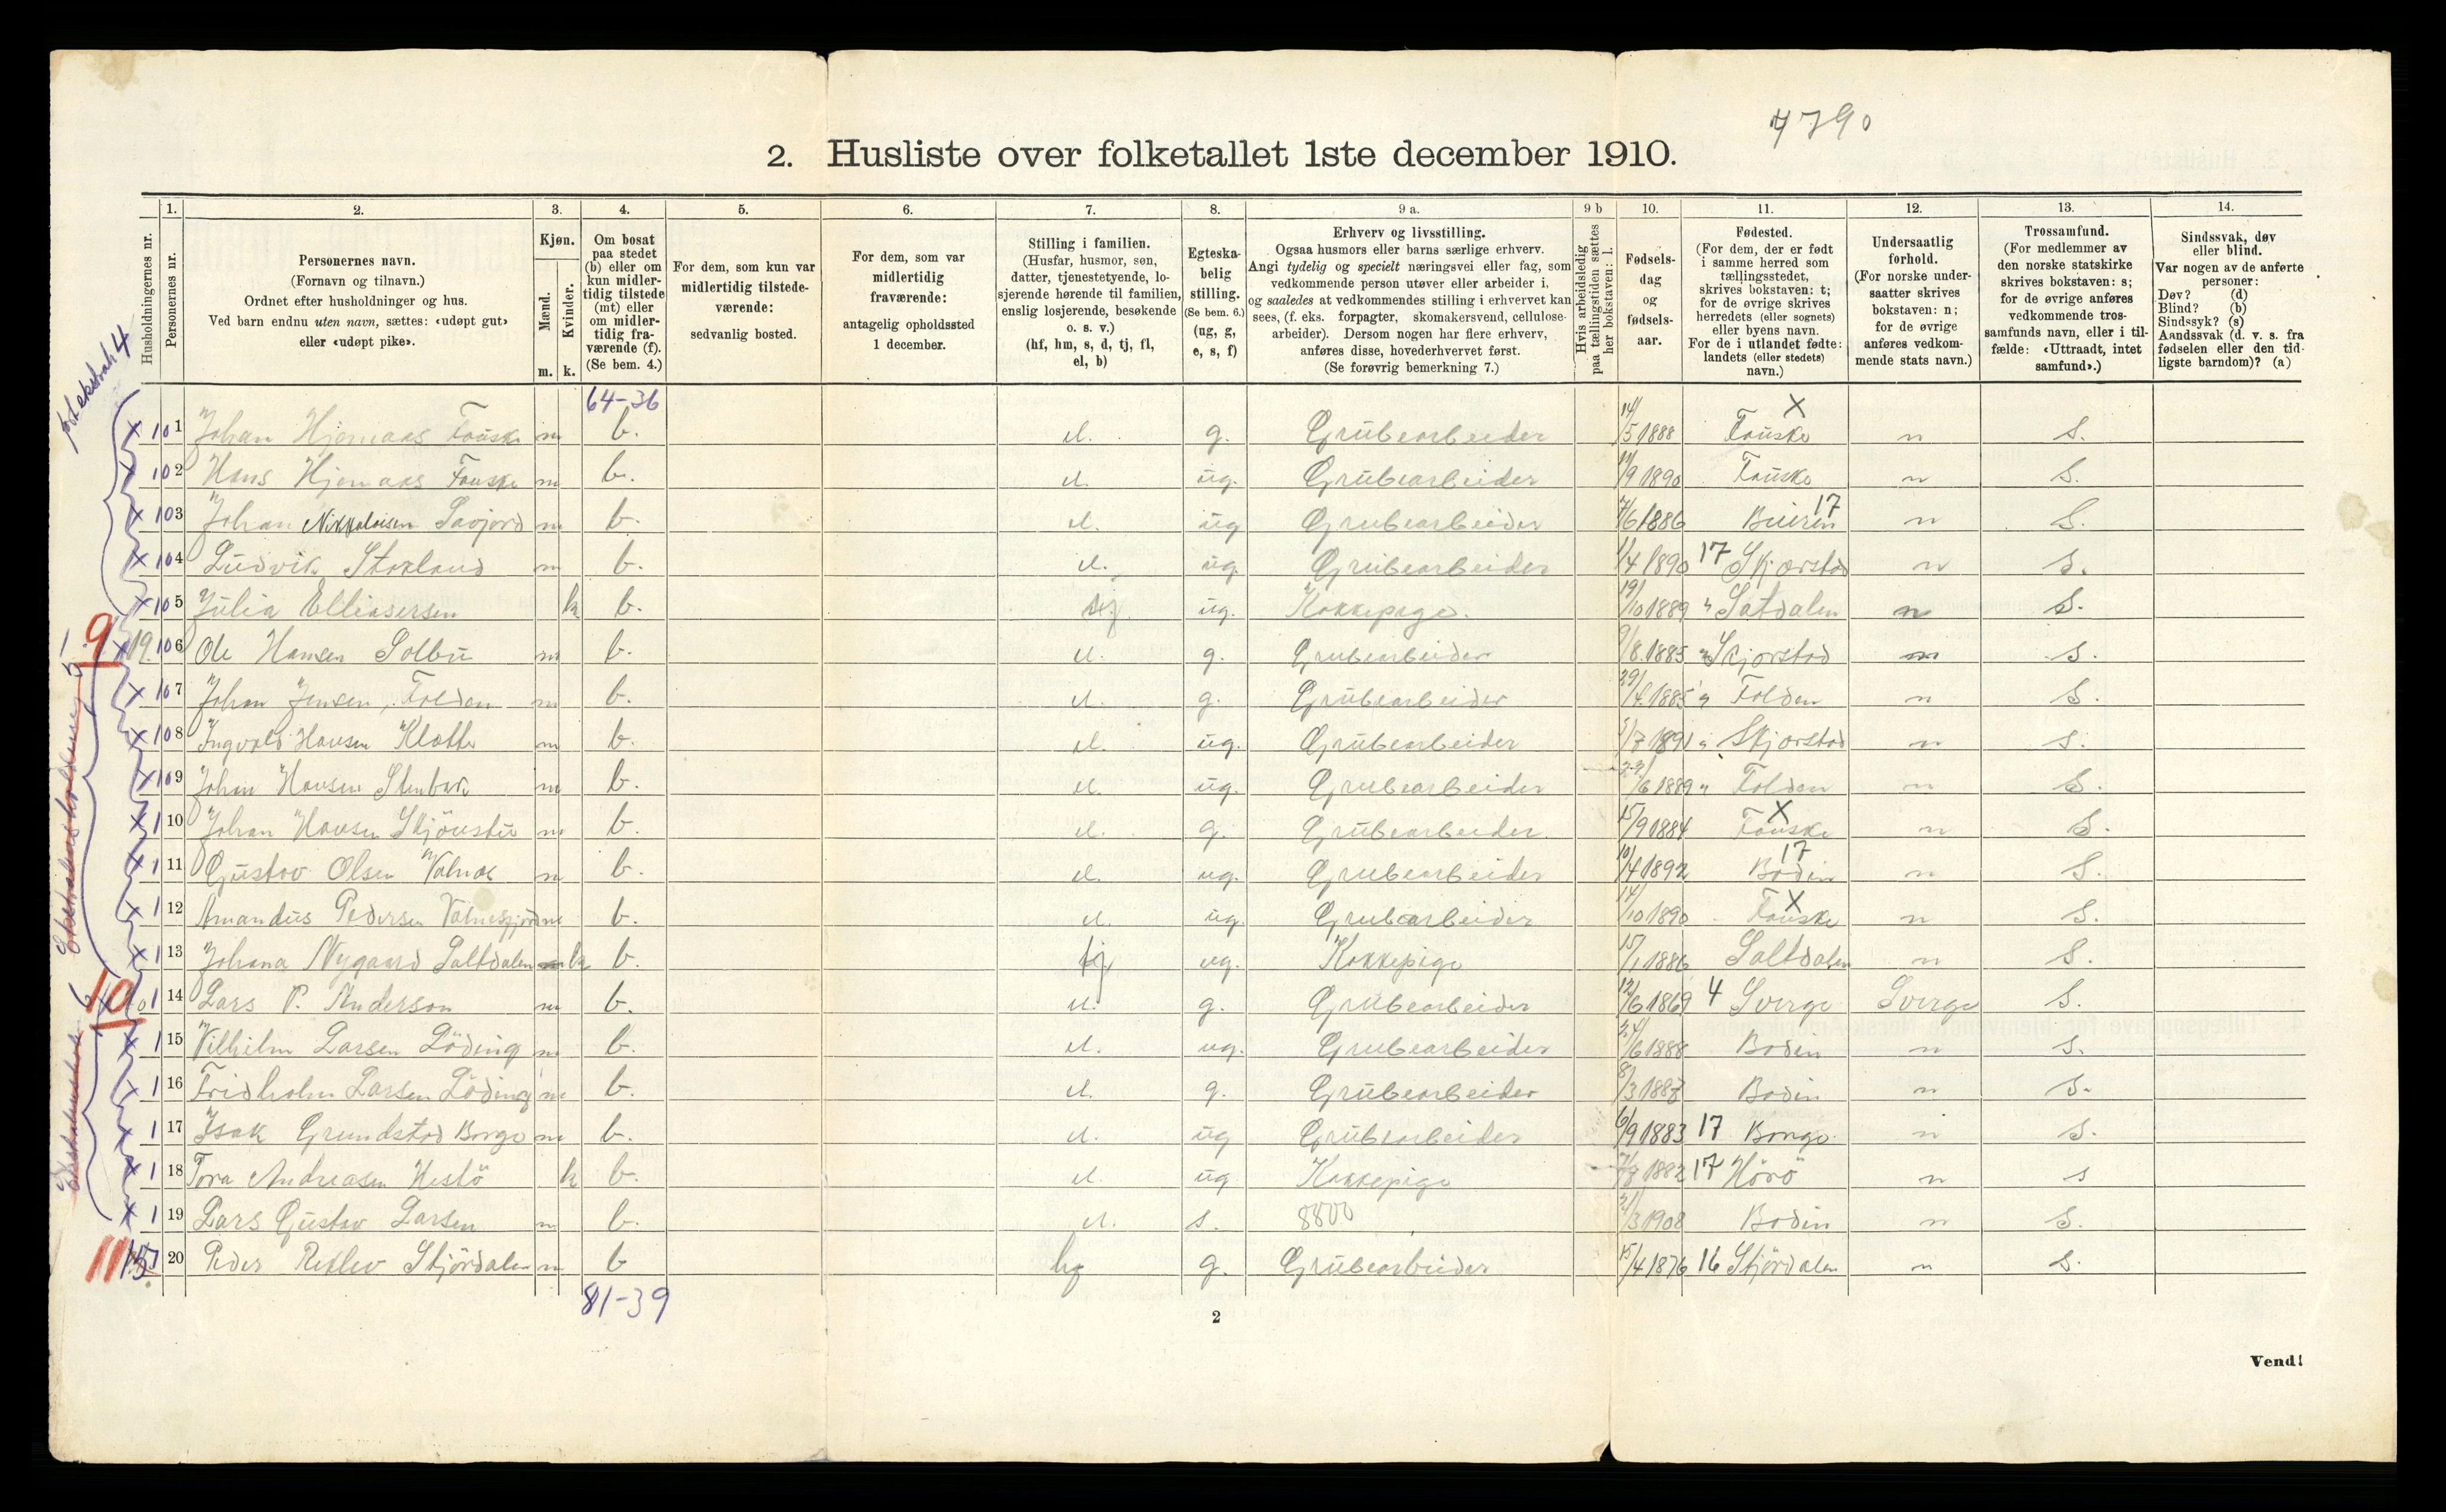 4790
2. Husliste over folketallet 1ste december 1910.
1. 2. 3. 4. 5. 6. 7. 8. 9 a. 9 b 10. 11. 12. 13. 14.
Husholdningernes nr.
Personernes nr.
Personernes navn.
(Fornavn og tilnavn.)
Ordnet efter husholdninger og hus.
Ved barn endnu uten navn, sættes: «udøpt gut»
eller «udøpt pike».
Kjøn.
Mænd.
Kvinder.
m. k.
Om bosat
paa stedet
(b) eller om
kun midler-
tidig tilstede
(mt) eller
om midler-
tidig fra-
værende (f).
(Se bem. 4.)
For dem, som kun var
midlertidig tilstede-
værende:
sedvanlig bosted.
For dem, som var
midlertidig
fraværende:
antagelig opholdssted
1 december.
Stilling i familien.
(Husfar, husmor, søn,
datter, tjenestetyende, lo-
sjerende hørende til familien,
enslig losjerende, besøkende
o. s. v.)
(hf, hm, s, d, tj, fl,
el, b)
Egteska-
belig
stilling.
(Se bem. 6.)
(ug, g,
e, s, f)
Erhverv og livsstilling.
Ogsaa husmors eller barns særlige erhverv.
Angi tydelig og specielt næringsvei eller fag, som
vedkommende person utøver eller arbeider i,
og saaledes at vedkommendes stilling i erhvervet kan
sees, (f. eks. forpagter, skomakersvend, cellulose-
arbeider). Dersom nogen har flere erhverv,
anføres disse, hovederhvervet først.
(Se forøvrig bemerkning 7.)
Hvis arbeidsledig
paa tællingstiden sættes
her bokstaven: l.
Fødsels-
dag
og
fødsels-
aar.
Fødested.
(For dem, der er født
i samme herred som
tællingsstedet,
skrives bokstaven: t;
for de øvrige skrives
herredets (eller sognets)
eller byens navn.
For de i utlandet fødte:
landets (eller stedets)
navn.)
Undersaatlig
forhold.
(For norske under-
saatter skrives
bokstaven: n;
for de øvrige
anføres vedkom-
mende stats navn.)
Trossamfund.
(For medlemmer av
den norske statskirke
skrives bokstaven: s;
for de øvrige anføres
vedkommende tros-
samfunds navn, eller i til-
fælde: «Uttraadt, intet
samfund».)
Sindssvak, døv
eller blind.
Var nogen av de anførte
personer:
Døv? (d)
Blind? (b)
Sindssyk? (s)
Aandssvak (d. v. s. fra
fødselen eller den tid-
ligste barndom)? (a)
64-36
x 101 Johan Hjemaas Fauske m b. el. g. Grubearbeider 14/5 1888 Fauske n S.
x 102 Hans Hjemaas Fauske m b. el. ug. Grubearbeider 11/9 1890 Fauske n S.
x 103 Johan Nikkolaisen Savjord m b. el. ug Grubearbeider 7/6 1886 Beieren 17 n S.
x 104 Ludvik Storland m b. el. ug. Grubearbeider 1/4 1890 17 Skjerstad n S.
x 105 Julia Elliasersen k b. tj ug. Kokkepige. 19/10 1889 " Satdalen n S.
9 x 106 Ole Hansen Solbu m b. el. g. Grubearbeider 9/8 1885 " Skjerstad n S.
x 107 Johan Jensen, Folden m b. el. g. Grubearbeider 29/4 1885 " Folden n S.
x 108 Ingvald Hansen Kletto m b. el. ug. Grubearbeider /7 1891 " Skjerstad n S.
x 109 Johan Hansen m b. el. ug. Grubearbeider /6 1889 " Folden n S.
x 110 Johan Hansen Skjönstu m b. el. g. Grubearbeider 15/9 1884 Fauske X n S.
x 111 Gustav Olsen Valnes m b. el. ug. Grubearbeider 10/4 1892 Bodin 17 n S.
x 112 Amandus Pedersen Valnesfjord m b. el. ug. Grubearbeider 14/10 1890 Fauske X n S.
x 113 Johana Nygaard Saltdalen k b. tj ug. Kokkepige 15/1 1886 Saltdalen n S.
10 114 Lars P. Anderson m b. el. g. Grubearbeider 12/6 1869 4 Sverge Sverge S.
x 115 Vilhilm Larsen Löding m b. el. ug. Grubearbeider 24/6 1888 Bodin n S.
x 116 Fridholm Larsen Löding m b. el. g. Grubearbeider 8/3 1887 Bodin n S.
x 117 Isak Grundstad Borge m b. el. ug Grubearbeider 6/9 1883 17 Borge n S.
x 118 Tora Andreasen Hestö k b. el. ug Kokkepige 1882 17 Hërö n s
x 119 Lars Gustav Larsen m b. el. s. 8800 21/3 1908 Bodin n S.
11 20 Peder Stjördalen m b hf g. Grubearbeider 15/4 1876 16 Stjördalen n S.
81-39
2
Vend!